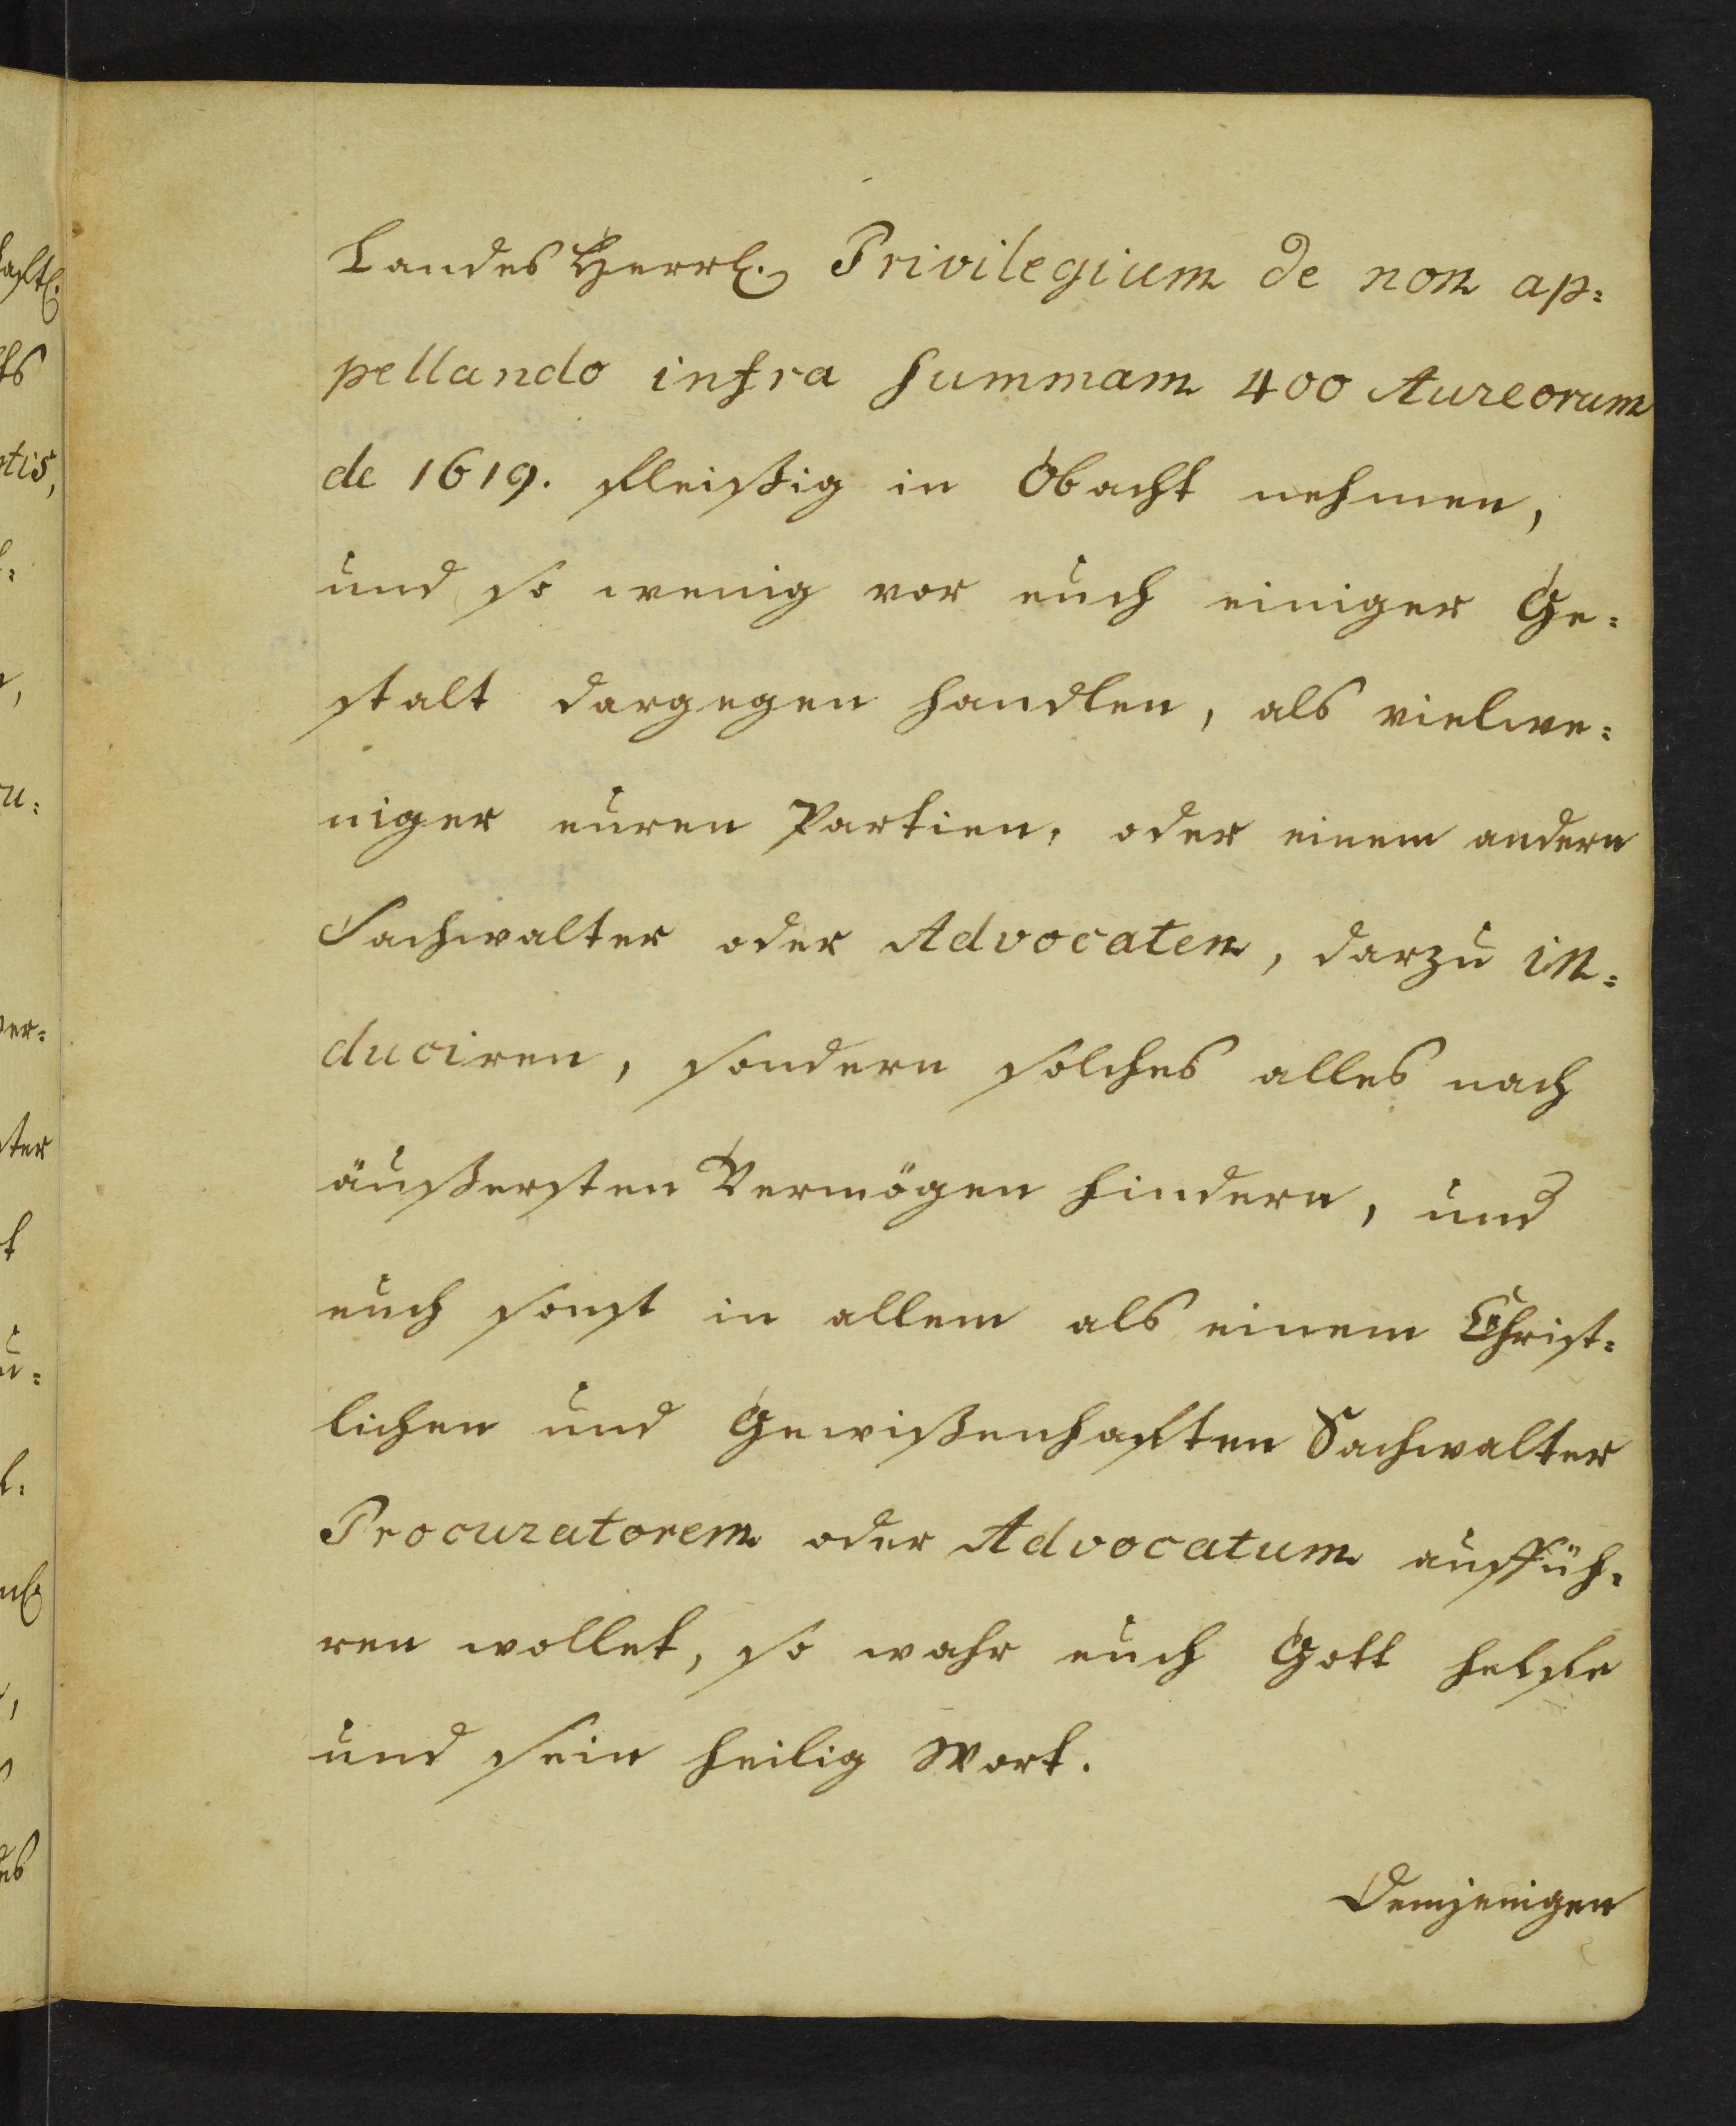 Landes Herrl. Privilegium de non ap=
pellando infra summam 400 Aureorum
de 1619. fleißig in Obacht nehmen,
und so wenig vor euch einiger Ge=
stalt dargegen handlen, als vielwe=
niger euren Partien, oder einem andern
Sachwalter oder Advocaten, darzu in=
duciren, sondern solches alles nach
äußersten Vermögen hindern, und
euch sonst in allem als einem Christ=
lichen und Gewißenhafften Sachwalter
Procuratorem oder Advocatum auffüh=
ren wollet, so wahr euch Gott helffe
und sein heilig Wort.
Demjenigen